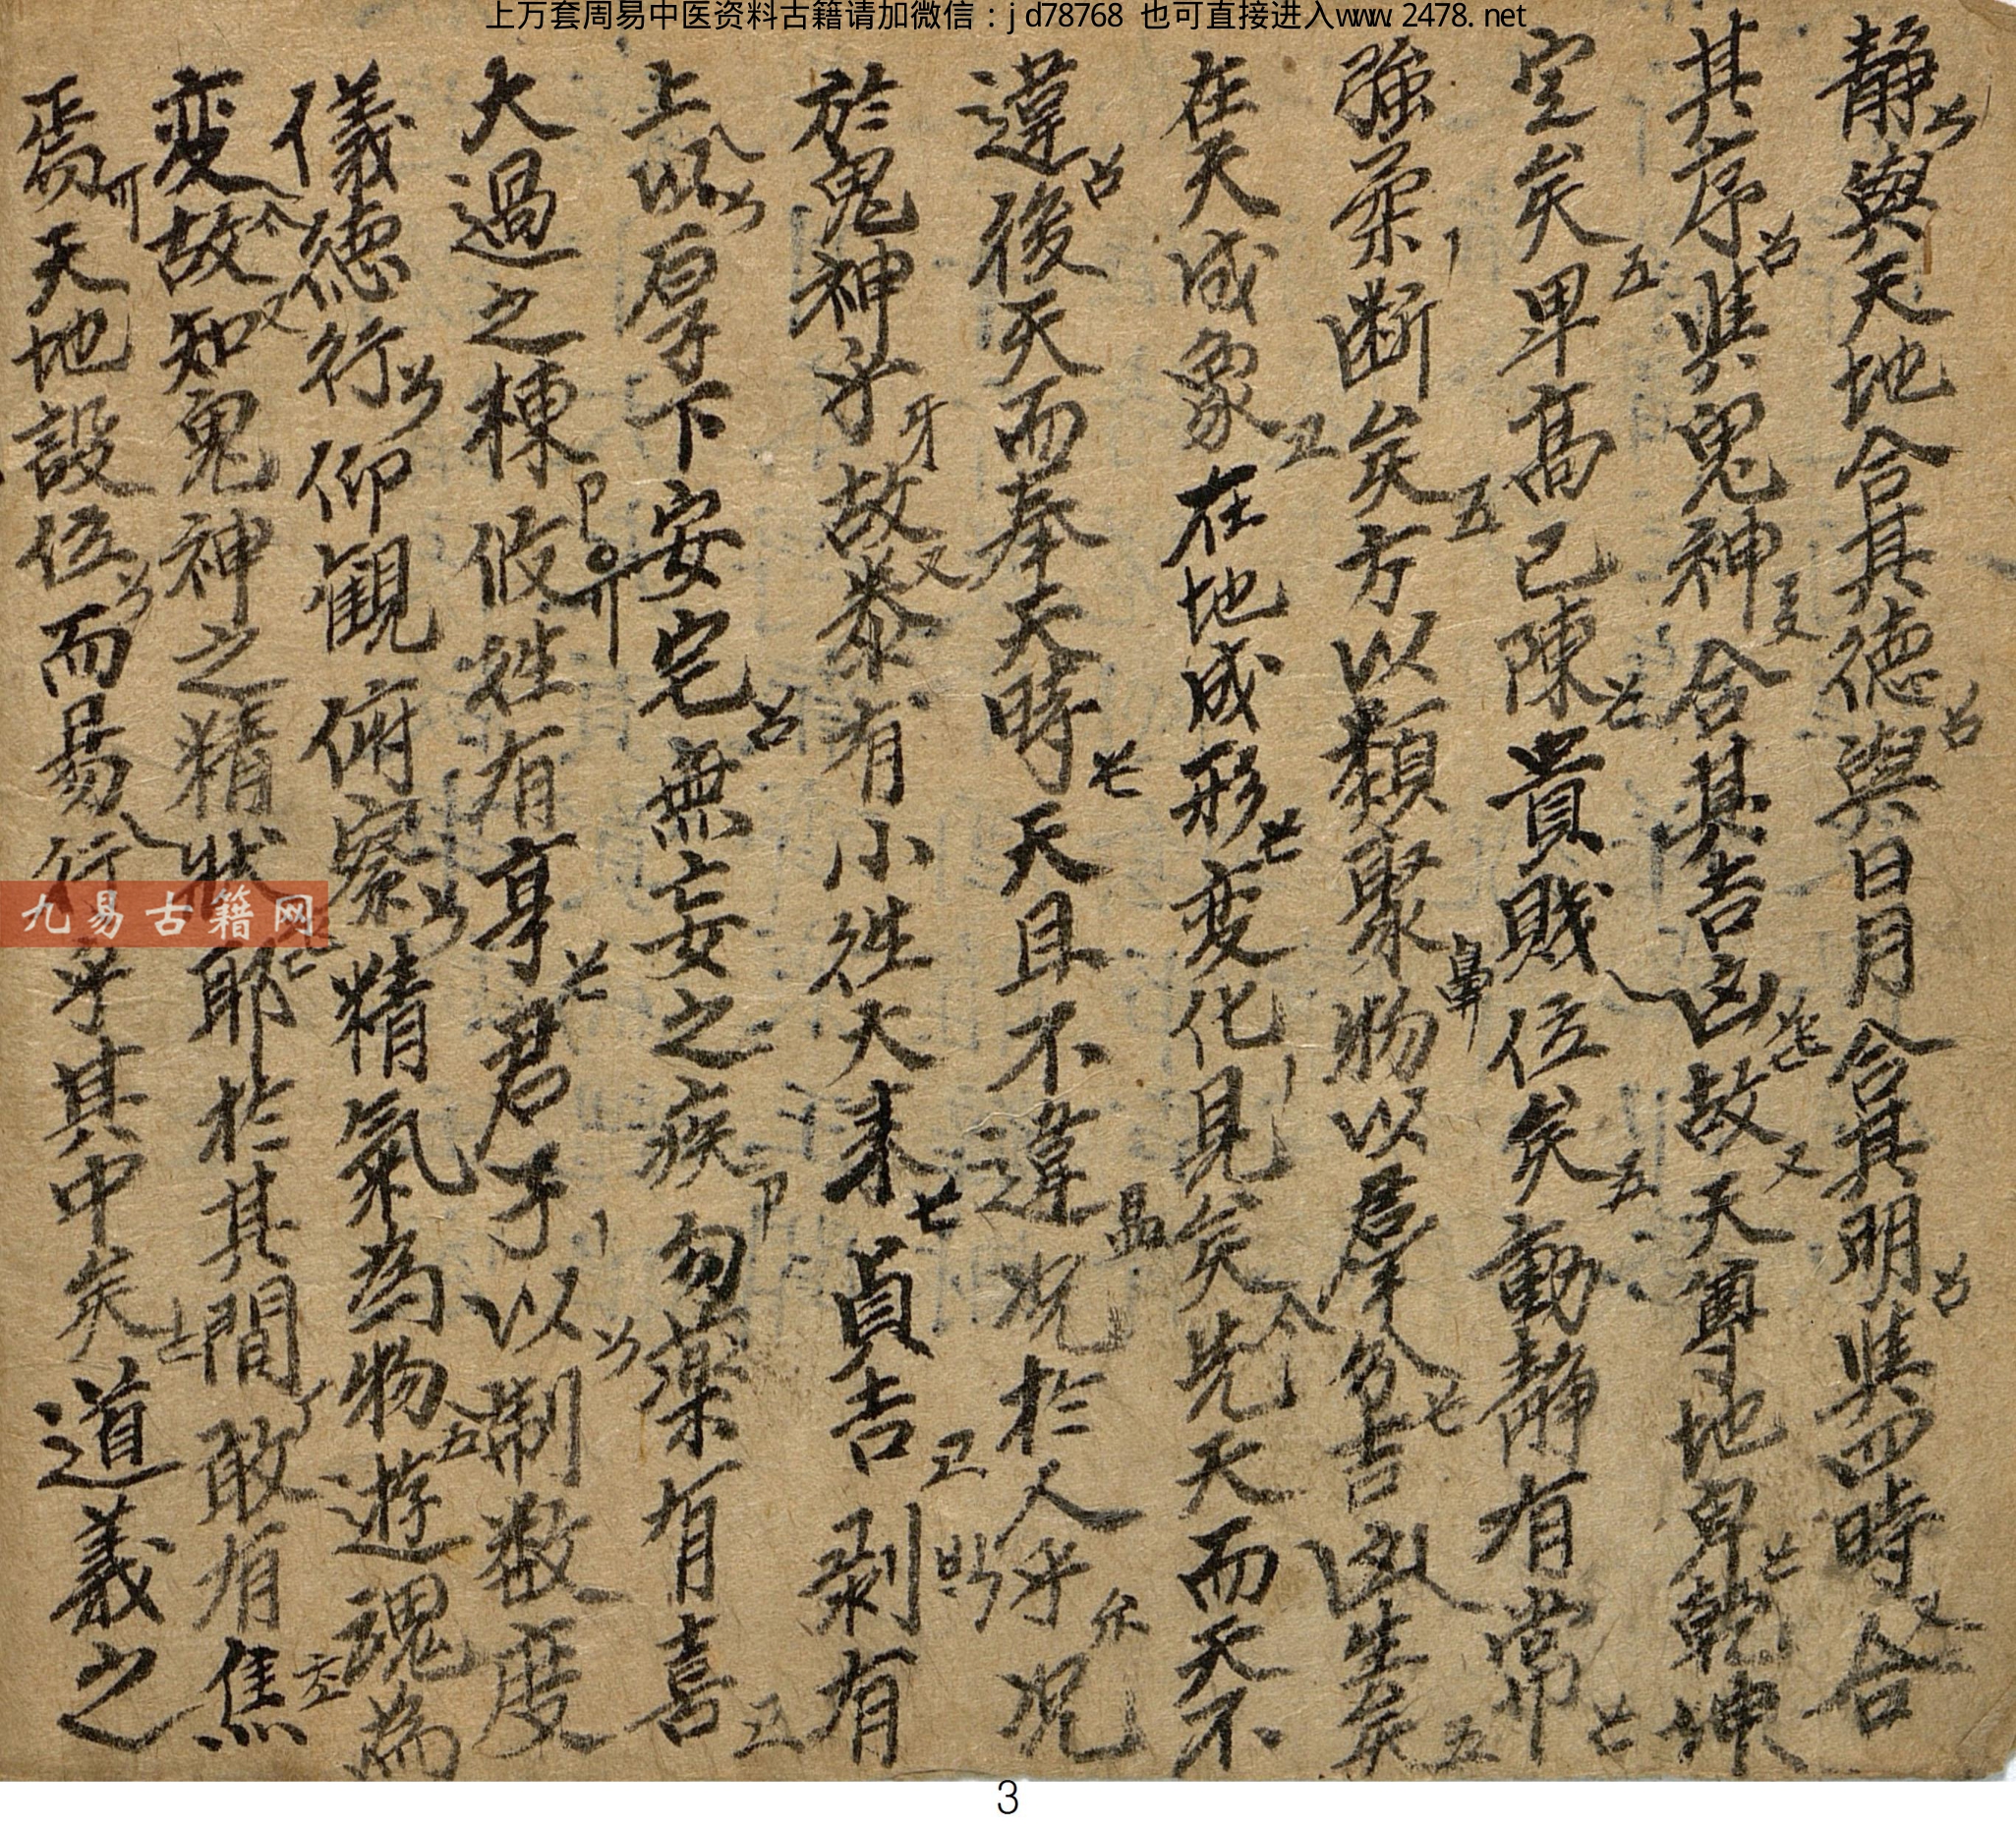 上万套周易中医资料古籍请加微信：jd78768 也可直接进入www.2478.net
静与天地合其德與日月合其明與四時合
其序與鬼神合其吉凶故天尊地卑乾坤
定矣卑高已陳貴賎位矣動静有常
強柔断矣方以類聚物以羣分吉凶生矣
在天成象在地成形变化見矣先天而天不
違後天而奉天時天且不違况於人乎况
於鬼神乎故泰有小徃大来貞吉剥有
上以厚下安宅無妄之疾勿薬有喜
大過之棟攸徃有亨君子以制数度
儀德行仰観俯察精氣為物遊魂為
变故知鬼神之精状耶於其間敢有焦
焉天地設位而易行乎其中矣道義之
九易古籍网
3